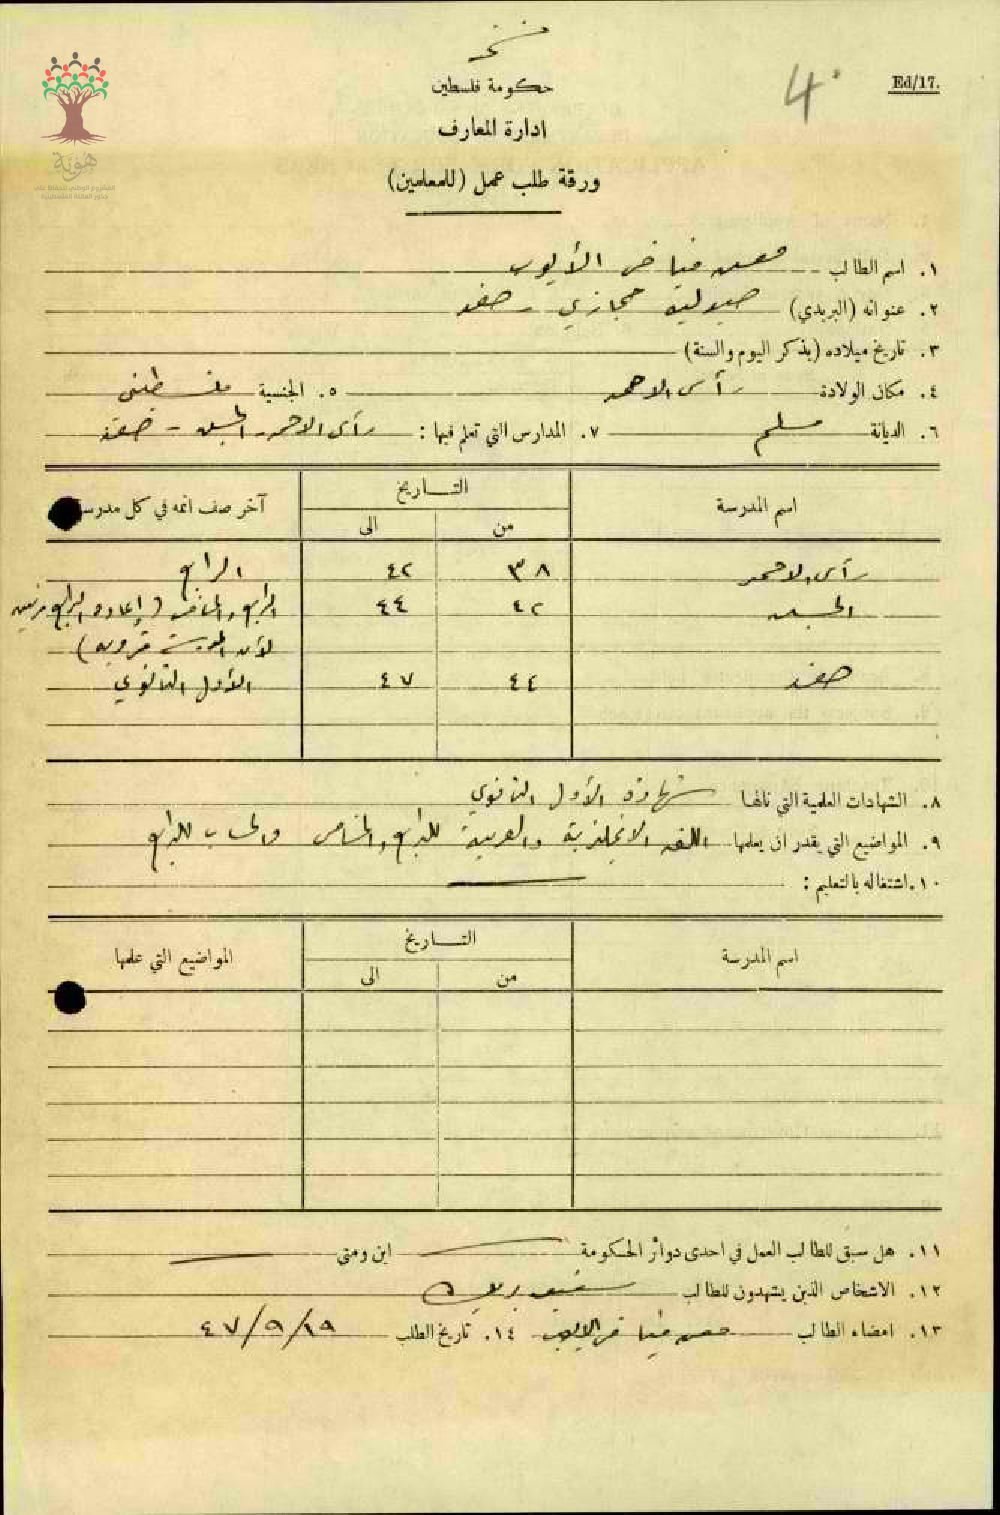 Ed/17.
4
حكومة فلسطين
ادارة المعارف
ورقة طلب عمل (للمعلمين)
هوية
المشروع الوطني للحفاظ على
جذور العائلة الفلسطينية
١. اسم الطالب فياض الأيوب
٢. عنوانه (البريدي) حجازي - صفد
٣. تاريخ ميلاده (يذكر اليوم والسنة)
٤. مكان الولادة رأس الاحمر ٥. الجنسية فلسطيني
٦. الديانة مسلم ٧. المدارس التي تعلم فيها : رأس الاحمر - الجش - صفد
اسم المدرسة التاريخ آخر صف اتمه في كل مدرسة
من الى
رأس الاحمر ٣٨ ٤٢ الرابع
الجش ٤٢ ٤٤ الرابع والخامس (إعادة الرابع مرتين
لأن المدرسة قروية)
صفد ٤٤ ٤٧ الأول الثانوي
٨. الشهادات العلمية التي نالها شهادة الأول الثانوي
٩. المواضيع التي يقدر ان يعلمها اللغة الانجليزية والعربية للرابع والخامس والحساب للرابع
١٠. اشتغاله بالتعليم :
اسم المدرسة التاريخ المواضيع التي علمها
من الى
١١. هل سبق للطالب العمل في احدى دوائر الحكومة اين ومتى
١٢. الاشخاص الذين يشهدون للطالب
١٣. امضاء الطالب فياض الأيوب ١٤. تاريخ الطلب ١٩/٩/٤٧